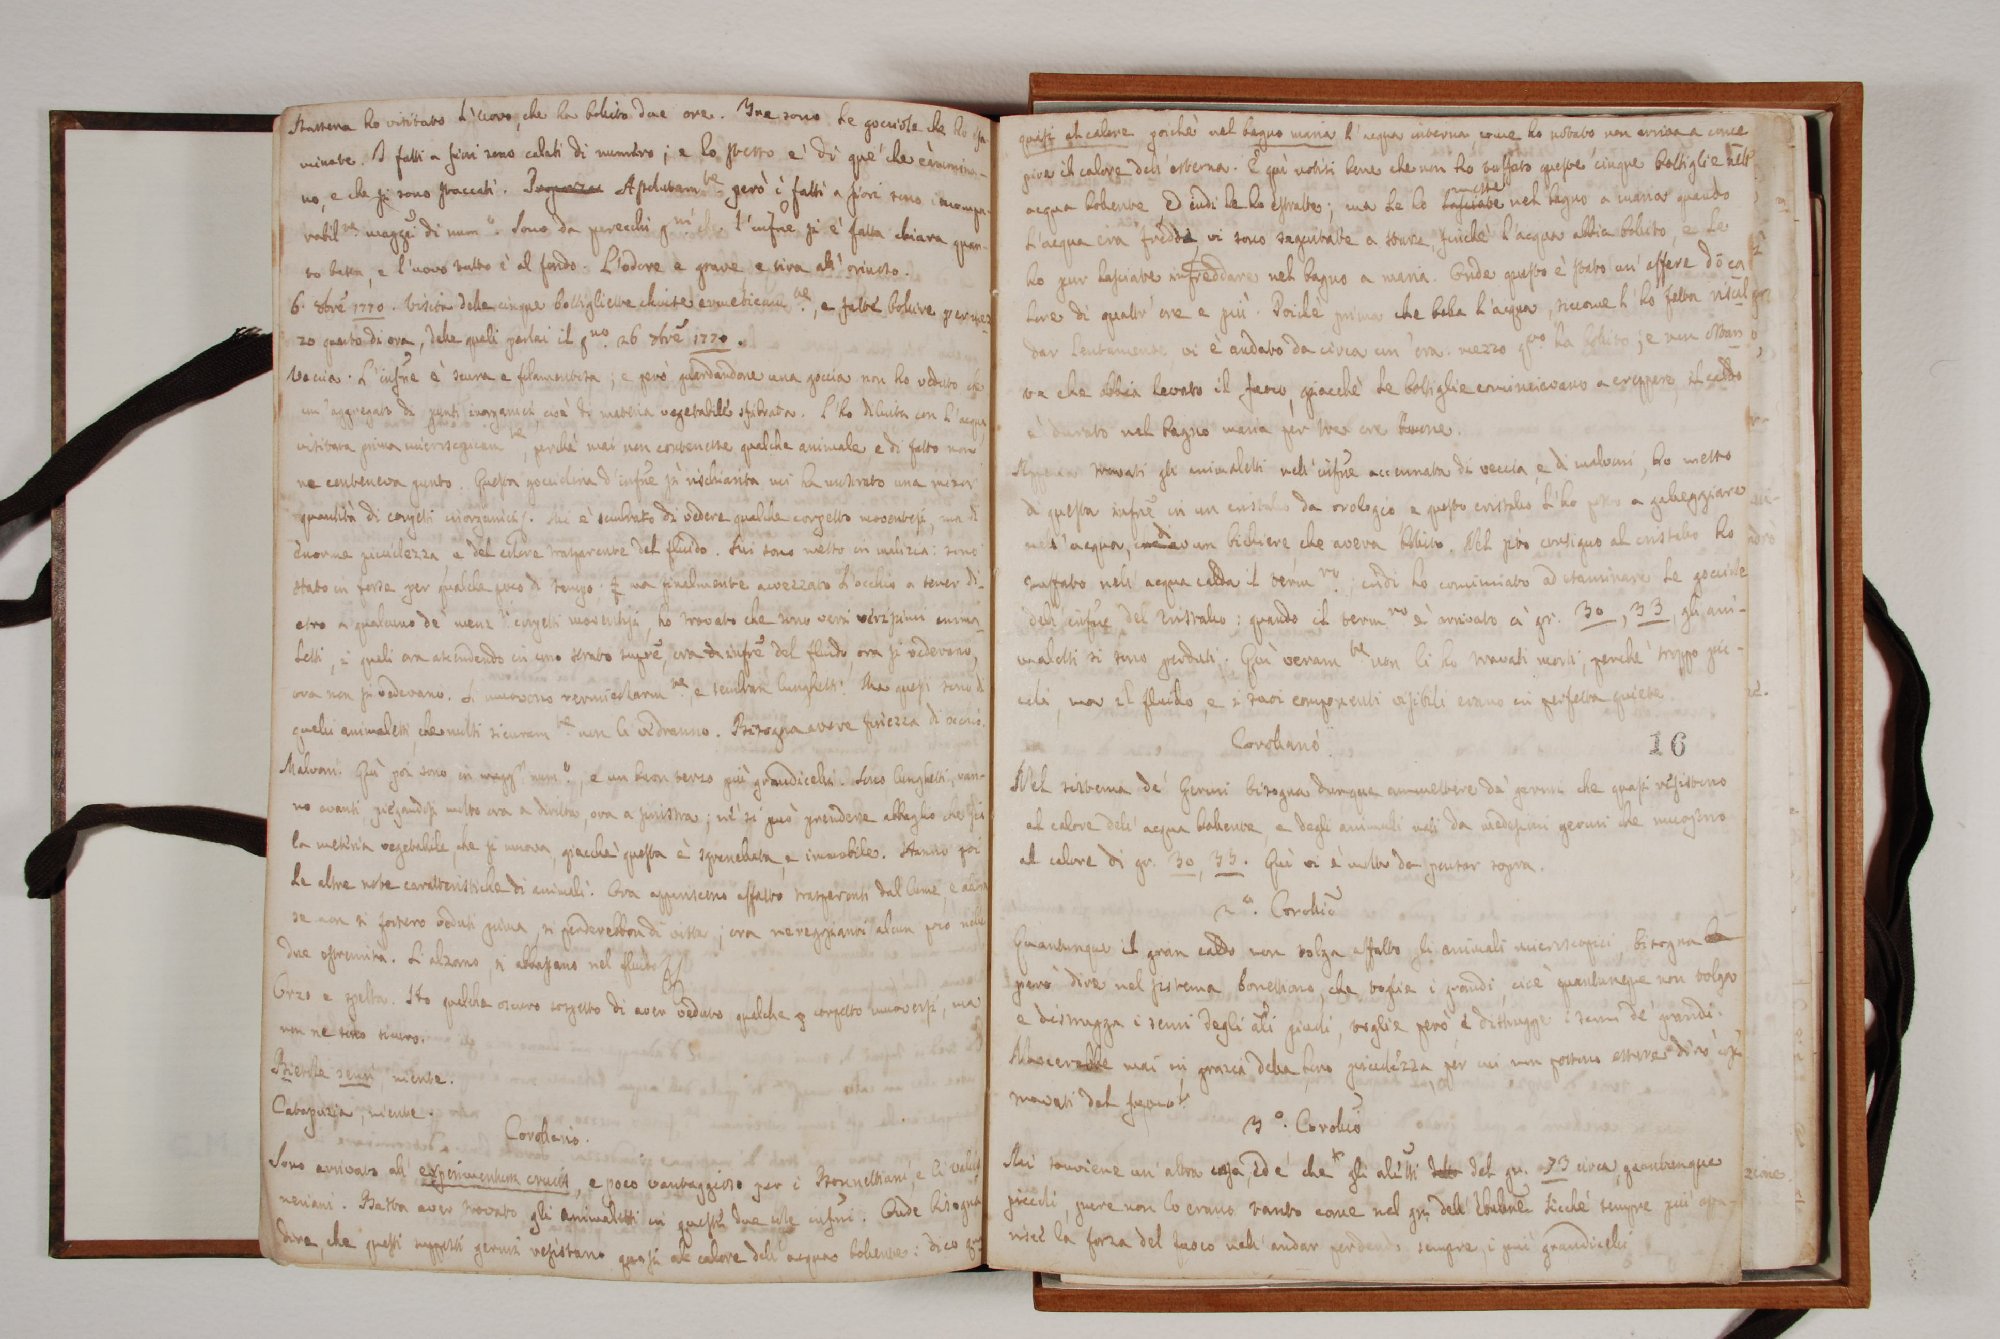 Stassera ho visitato l'uovo, che ha bolito due ore. Tre sono le gocciole che ho esa-
minate. I fatti a fiori sono calati di numero; e lo stesso è di que' che
no, e che si sono staccati. Assolutam.te però i fatti a fiori sono incompa-
rabil.te magg.i di num.o. Sono da parecchi g.ni che l'infus.e si è fatta chiara quan-
to basta, e l'uovo tutto è al fondo. L'odore è grave e tira all'
6. 8bre 1770. Visita delle cinque bottigliette chiuse ermeticam.te, e fatte bolire per mez-
zo quarto di ora, delle quali parlai il g.no 26 7bre 1770.
Veccia. L'infus.e è scura e filamentosa; e però guardandone una goccia non ho veduto che
un'aggregato di punti inorganici, cioè di materia vegetabile sfibrata. L'ho diluita con l'acqua
visitata prima microscopicam.te, perchè mai non contenesse qualche animale e di fatto non
ne conteneva punto. Questa gocciolina d'infus.e più rischiarita mi ha mostrato una minor
quantità di corpetti inorganici. Mi è sembrato di vedere qualche corpetto moventesi, ma di
enorme piccolezza, e del colore trasparente del fluido. Mi sono messo in malizia: sono
stato in forse per qualche poco di tempo, ma finalmente avvezzato l'occhio a tener di-
etro a qualcuno de' menz.ti corpetti moventisi, ho trovato che sono veri verissimi anima-
letti, i quali ora ascendendo in uno strato sup.re, ora d'inf.re del fluido, ora si vedevono,
ora non si vedevano. Si muovono vermicolarm.te, e sembran lunghetti. Ma questi sono di
quelli animaletti, che molti sicuram.te non li vedranno. Bisogna avere finezza di occhio.
Malvoni. Quì poi sono in magg.r num.o, e un buon terzo più grandicelli. Sono lunghetti, van-
no avanti, piegandosi molto ora a diritta, ora a sinistra; nè si può prendere abbaglio che sia
la materia vegetabile, che si muova, giacchè questa è sgranellata, e immobile. Hanno poi
le altre note caratteristiche di animali. Ora appariscono affatto trasparenti dal lume, e allora
se non si fossero veduti prima, si perderebbon di vista; ora neregg[...] alcun poco nelle
due estremità. Si alzano, si abbassano nel fluido
Orzo e spelta. Ho qualche oscuro sospetto di aver veduto qualche corpetto muoversi, ma
non ne sono sicuro.
Bietole semi, niente.
Catapuzia, niente.
Corollario.
Sono arrivato all' experimentum crucis, e poco vantaggioso per i Bonnettiani, e li Valis-
neriani. Basta aver trovato gli animaletti in queste due sole infus.ni. Onde bisogna
dire, che questi supposti germi resistano quasi al calore dell'acqua bollente: dico
quasi al calore, poichè nel bagno maria l'acqua interna come ho notato non arriva a conce-
pire il calore dell'esterna. E quì notisi bene che non ho tuffato queste cinque bottiglie nell'
acqua bollente ed indi le ho estratte; ma le ho messe nel bagno a maria quando
l'acqua era fredda, vi sono seguitate a stare, finchè l'acqua abbia bolito, e le
ho pur lasciate infreddare nel bagno a maria. Onde questo è stato un'affare di ca-
lore di quattr'ore e più. Poichè prima che bolla l'acqua, siccome l'ho fatta riscal-
dar lentamente vi è andato da circa un'ora. mezzo q.to ha bolito; e non ostan-
te che abbia levato il fuoco, giacchè le bottiglie cominciavano a creppare, il caldo
è durato nel bagno maria per tre ore buone.
Appena trovati gli animaletti nell'infus.e accennata di veccia, e di malvoni, ho messo
di questa infus.e in un cristallo da orologio e questo cristallo l'ho posto a galleggiare
nell'acqua, un bichiere che aveva bolito. Nel sito contiguo al cristallo ho
tuffato nell'acqua calda il term.ro; indi ho cominciato ad esaminare le gocciole
dell'infus.e del cristallo: quando il term.ro è arrivato a gr. 30, 33, gli ani-
maletti si sono perduti. Quì veram.te non li ho trovati morti, perchè troppo pic-
coli, ma il fluido, e i suoi componenti visibili erano in perfetta quiete.
Corollario
16
Nel sistema de' Germi bisogna dunque ammettere de' germi che quasi resistono
al calore dell'acqua bollente, e degli animali nati da medesimi germi che muojono
al calore di gr. 30, 33. Quì vi è molto da pensar sopra.
2.o Corollario
Quantunque il gran caldo non tolga affatto gli animali microscopici, bisogna
però dire nel sistema bonettiano, che toglie i grandi, cioè quantunque non tolga
e distrugga i semi degli ali piccoli, toglie però e distrugge i semi de' grandi.
Nascerebbe mai in grazia della loro piccolezza, per cui non possono essere dirò così
trovati dal fuoco?
3.o Corollario
Mi sovviene un'altra cosa, ed è che gli al.tti del gr. 73 circa, quantunque
piccoli, pure non lo erano tanto come nel gr. dell'eboll.ne. Sicchè sempre più appa-
risce la forza del fuoco nell'andar perdendo sempre i più grandicelli